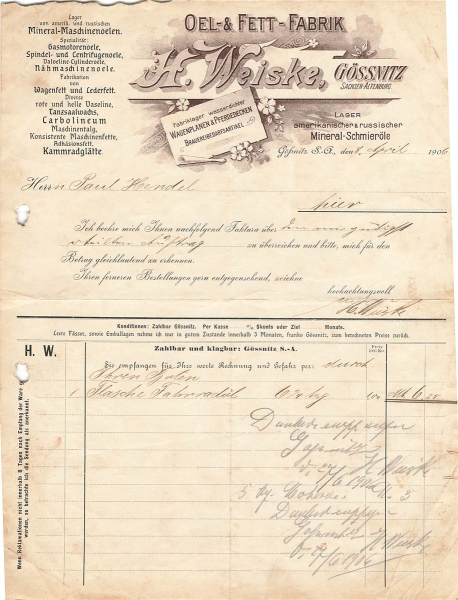 Lager
von amerik. und russischen
Mineral-Maschinenoelen.
Spezialität:
Gasmotorenoele,
Spindel- und Centrifugenoele,
Valvoline-Cylinderoele,
Nähmaschinenoele.
Fabrikation
von
Wagenfett und Lederfett.
Diverse
rote und helle Vaseline,
Tanzsaalwachs,
Carbolineum
Maschinentalg,
Konsistente Maschinenfette,
Adhäsionsfett,
Kammradglätte.
OEL- & FETT-FABRIK
H. Weiske,
GÖSSNITZ
SACHSEN-ALTENBURG
Fabriklager wasserdichter
WAGENPLANEN & PFERDEDECKEN
BRAUEREIBEDARFSARTIKEL
LAGER
amerikanischer & russischer
Mineral-Schmieröle
Gößnitz S.-A., den 8. April 1906
Herrn Paul Hendel
hier
Ich beehre mich Ihnen nachfolgend Faktura über den mir gütigst
erteilten Auftrag zu überreichen und bitte, mich für den
Betrag gleichlautend zu erkennen.
Ihren ferneren Bestellungen gern entgegensehend, zeichne
hochachtungsvoll
Konditionen: Zahlbar Gössnitz. Per Kasse % Skonto oder Ziel Monate.
Leere Fässer, sowie Emballagen nehme ich nur in gutem Zustande innerhalb 3 Monaten, franko Gössnitz, zum berechneten Preise zurück.
H. W.
Zahlbar und klagbar: Gössnitz S.-A.
Preis
Sie empfangen für Ihre werte Rechnung und Gefahr per: durch
Ihren
1 Flasche Fahrradöl M 6
Dankend empfangen
Gößnitz
d. 27/6 1906
5
Dankend empfangen
Gößnitz
d. 27/6 1906
Wenn Reklamationen nicht innerhalb 8 Tagen nach Empfang der Ware gemacht
werden, so betrachte ich die Sendung als anerkannt.